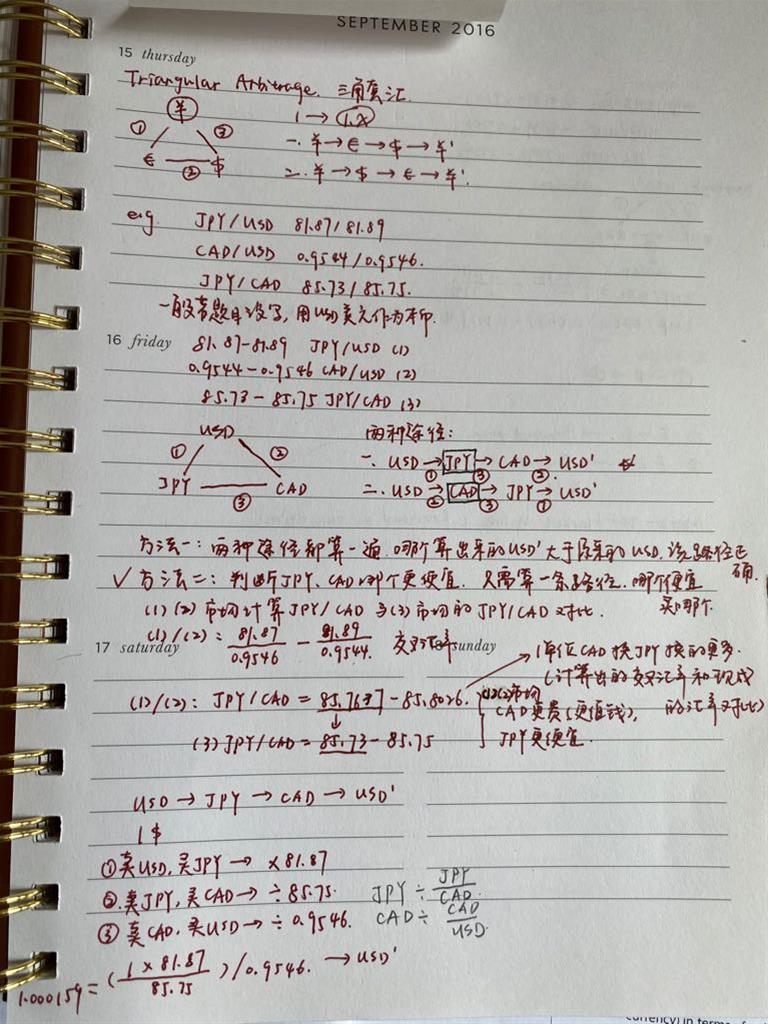 SEPTEMBER 2016
15 thursday
Triangular Arbitrage. 三角套汇.
¥
① ③
€ ② $
1 → 1.X
一. ¥ → € → $ → ¥'
二. ¥ → $ → € → ¥'
e.g. JPY/USD 81.87/81.89
CAD/USD 0.9544/0.9546.
JPY/CAD 85.73/85.75.
一般若题目没写, 用USD美元作为本币.
16 friday
81.87-81.89 JPY/USD (1)
0.9544-0.9546 CAD/USD (2)
85.73-85.75 JPY/CAD (3)
USD
① ②
JPY ③ CAD
两种途径:
一. USD → JPY → CAD → USD'
① ③ ②
二. USD → CAD → JPY → USD'
② ③ ①
方法一: 两种途径都算一遍. 哪个算出来的USD'大于原来的USD, 该路径正确.
✓ 方法二: 判断JPY、CAD哪个更便宜. 只需算一条路径. 哪个便宜买哪个.
(1)(2)市场计算JPY/CAD 与(3)市场的JPY/CAD对比.
17 saturday
sunday
(1)/(2): 81.87/0.9546 - 81.89/0.9544 交叉汇率
1单位CAD换JPY换的更多.
(计算出的交叉汇率和现成的汇率对比)
(1)/(2): JPY/CAD = 85.7637-85.8026.
(1)(2)市场
CAD更贵(更值钱),
JPY更便宜.
↓
(3) JPY/CAD = 85.73-85.75
USD → JPY → CAD → USD'
1 $
① 卖USD, 买JPY → ×81.87
② 卖JPY, 买CAD → ÷85.75. JPY ÷ JPY/CAD
③ 卖CAD, 买USD → ÷0.9546. CAD ÷ CAD/USD
1.000159 = (1 × 81.87 / 85.75)/0.9546. → USD'
currency) in terms of